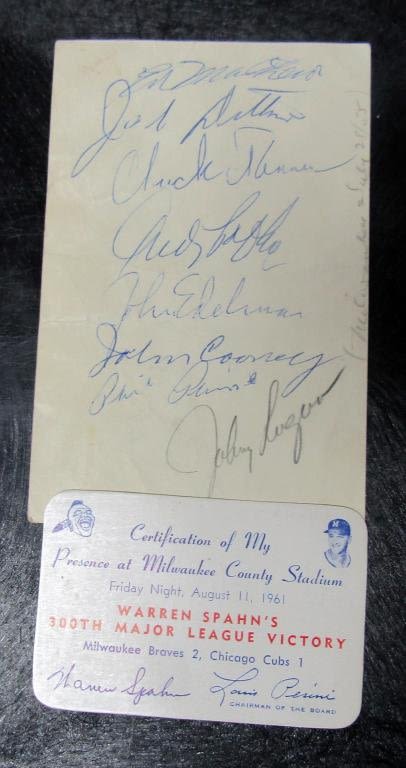 Ed Mathews
Jack Dittmer
Chuck Tanner
Andy Pafko
John Edelman
John Cooney
Phil
Johnny Logan
Milwaukee
Certification of My
Presence at Milwaukee County Stadium
Friday Night, August 11, 1961
WARREN SPAHN'S
300TH MAJOR LEAGUE VICTORY
Milwaukee Braves 2, Chicago Cubs 1
Warren Spahn Louis Perini
CHAIRMAN OF THE BOARD